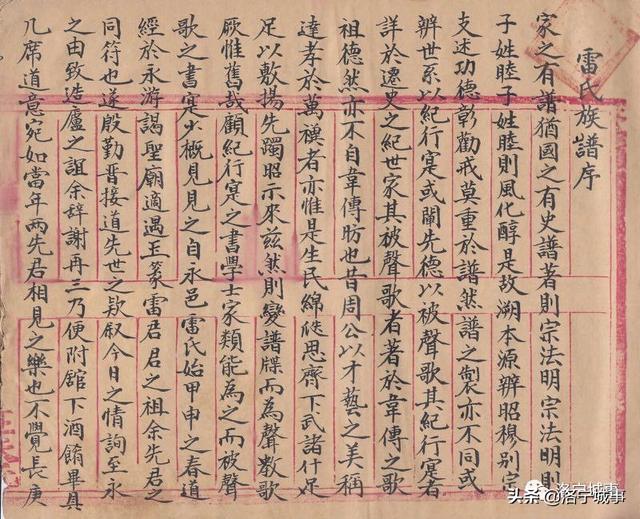 雷氏族譜序
家之有譜猶國之有史譜著則宗法明宗法明則
子姓睦子姓睦則風化醇是故溯本源辨昭穆別宗
支述功德彰勸戒莫重於譜然譜之製亦不同或
辨世系以紀行寔或闡先德以被聲歌其紀行寔者
詳於遷史之紀世家其被聲歌者著於韋傳之歌
祖德然亦不自韋傳昉也昔周公以才藝之美稱
達孝於萬禩者亦惟是生民綿緜思齊下武諸什足
足以敷揚先躅昭示來兹然則變譜牒而為聲教歌
厥惟舊哉顧紀行寔之書學士家類能為之而被聲
歌之書寔少概見見之自永邑雷氏始甲申之春道
經於永游謁聖廟適遇玉篆雷君君之祖余先君之
同符也遂殷勤晋接道先世之欵叙今日之情詢至永
之由致造廬之誼余辞謝再三乃便附舘下酒餚畢具
几席道意宛如當年兩先君相見之樂也不覺長庚
洛宁城事
头条@洛宁城事